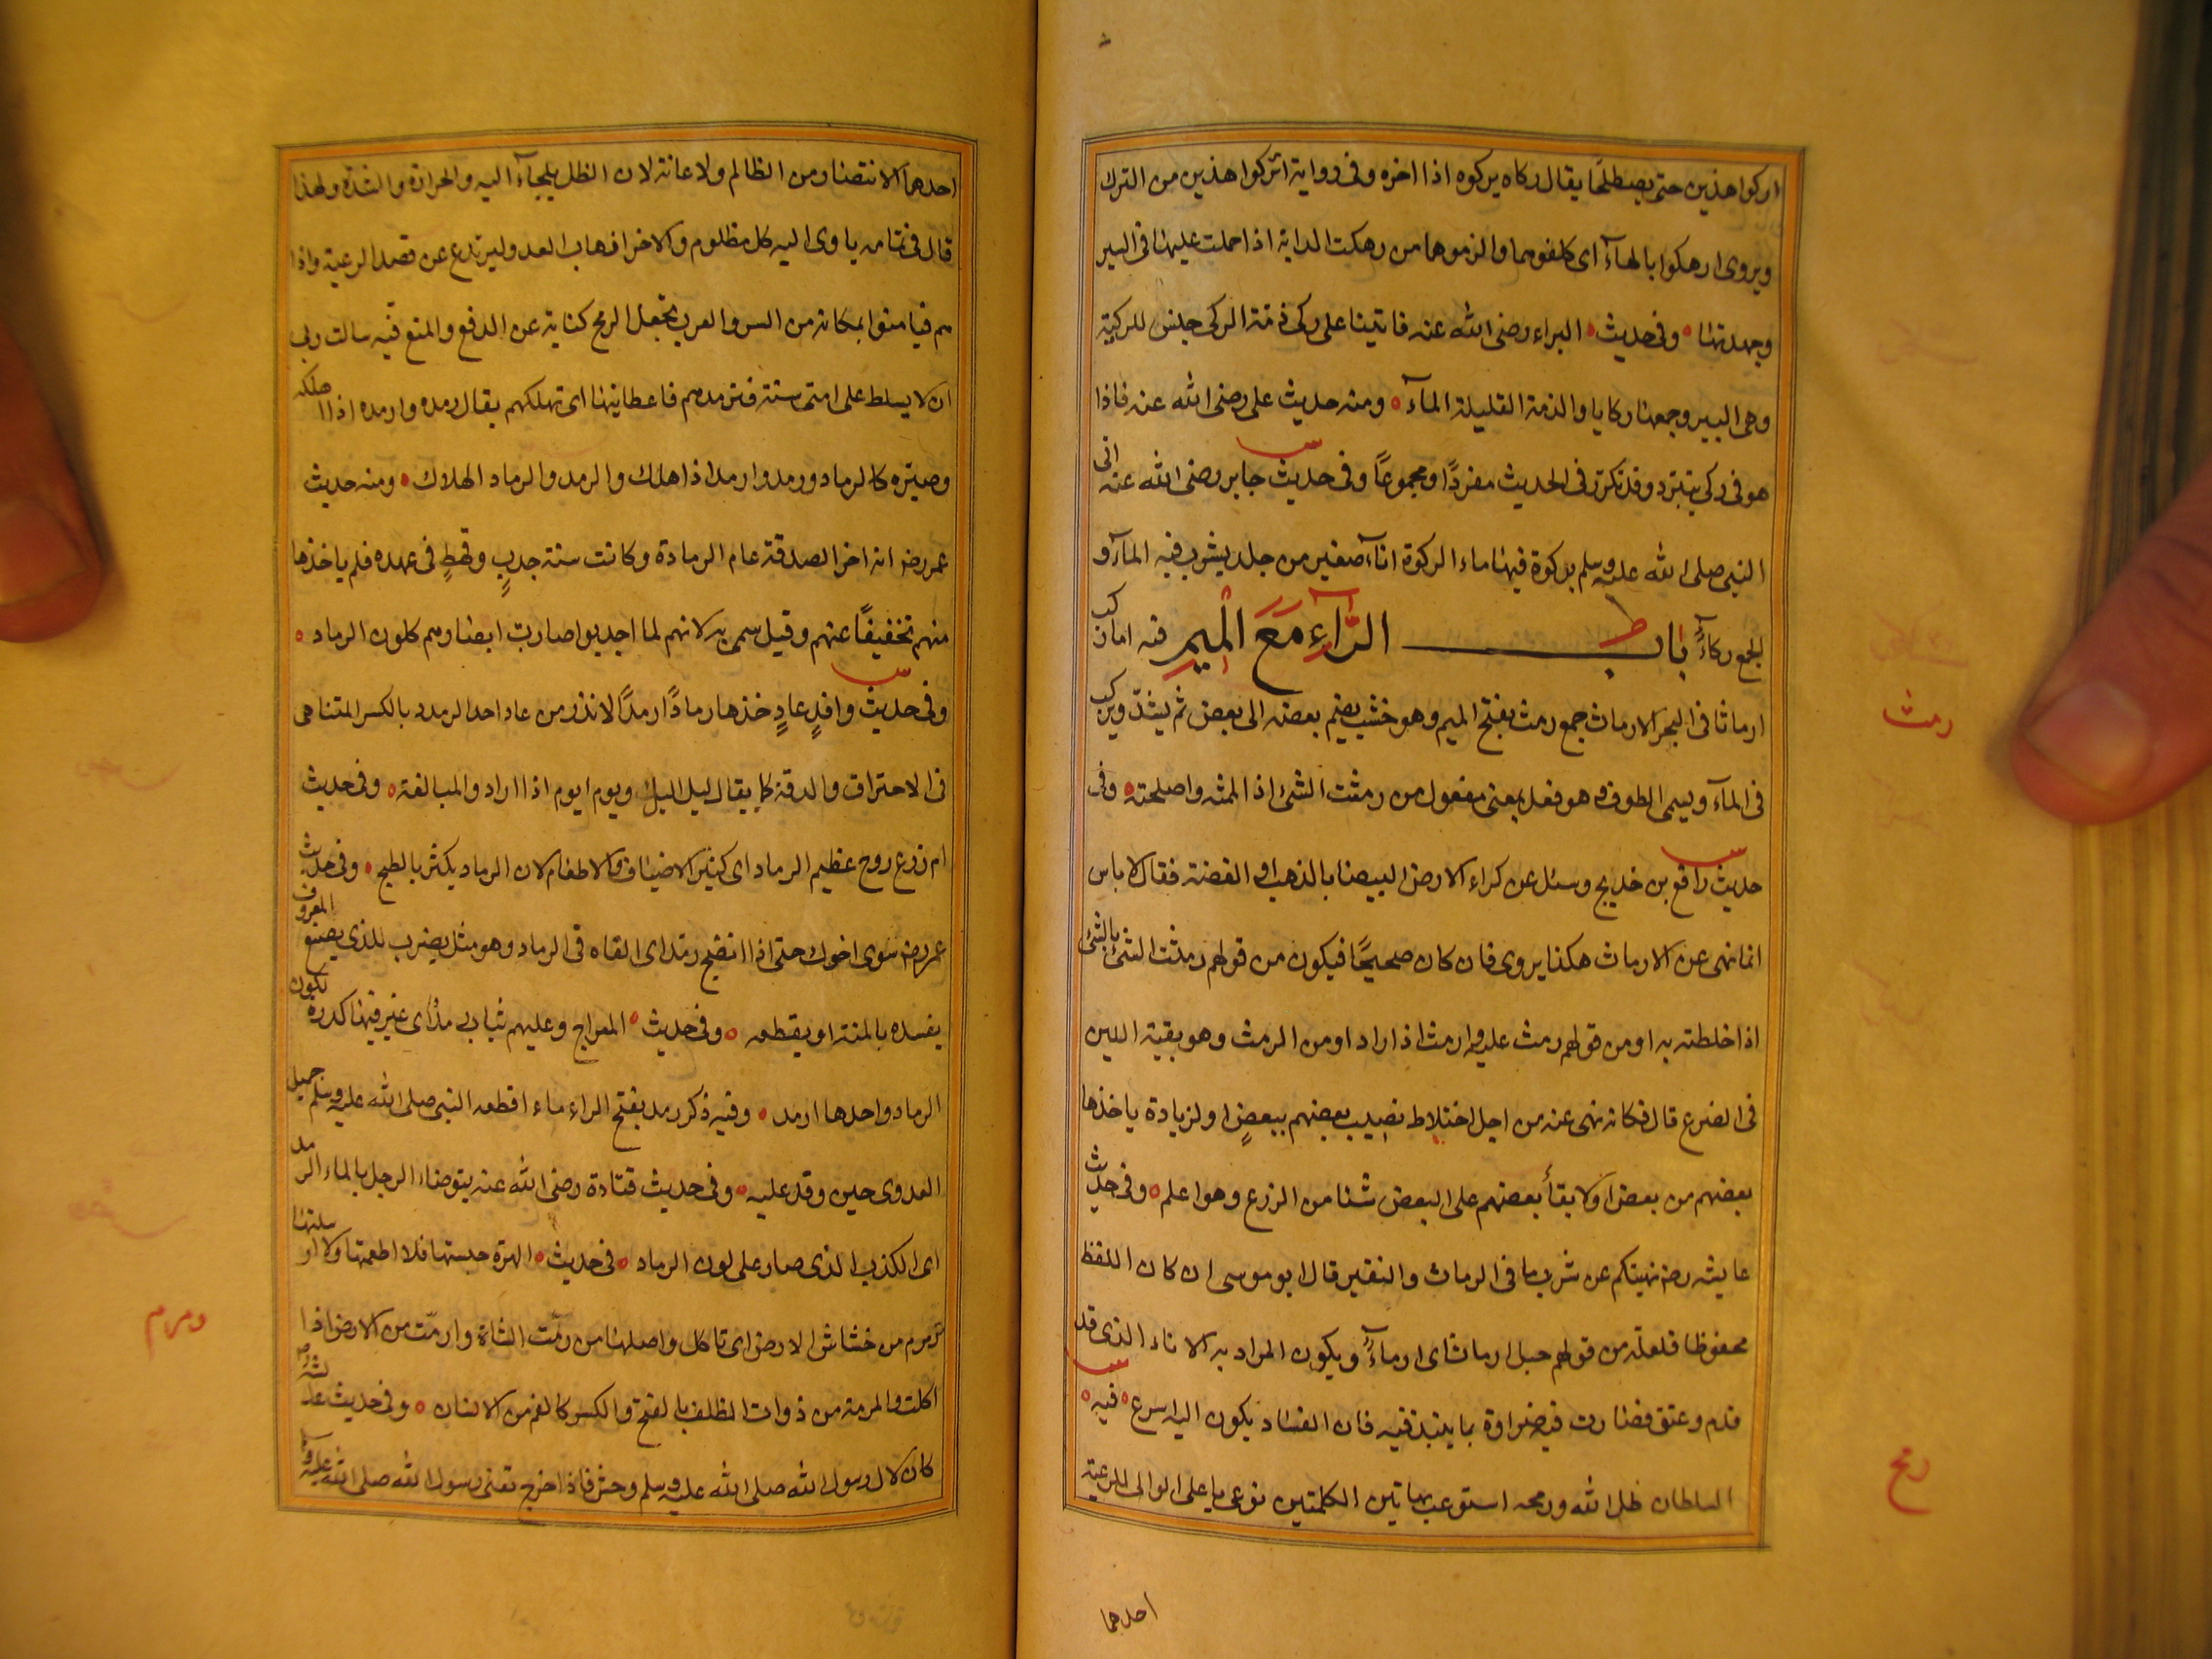 اركوا هذين حتى يصطلحا يقال ركاه يركوه اذا اخره وفى رواية اتركوا هذين من الترك
ويروى ارهكوا بالهآء اى كلفوهما والزموهما من رهكت الدابة اذا حملت عليها فى السير
وجهدتها وفى حديث البراء رضى الله عنه فاتينا على ركى ذمة الركى جنس للركية
وهى البير وجمعها ركايا والذمة القليلة المآء ومنه حديث على رضى الله عنه فاذا
هو فى ركى يتبرد وقد تكرر فى الحديث مفردًا ومجموعًا وفى حديث جابر رضى الله عنه اتى
النبى صلى الله عليه وسلم بركوة فيها ماء الركوة انآء صغير من جلد يشرب فيه المآء و
الجمع ركآءٌ باب الرَّآءِ مَعَ الْمِيمِ فيه انا نركب
ارماثا فى البحر الارماث جمع رمث بفتح الميم وهو خشب يضم بعضه الى بعض ثم يشدّ ويركب
فى المآء ويسمى الطوف وهو فعل بمعنى مفعول من رمثت الشئ اذا لممته واصلحته وفى
حديث رافع بن خديج وسئل عن كراء الارض البيضا بالذهب او الفضة فقال لا باس
انما نهى عن الارماث هكذا يروى فان كان صحيحًا فيكون من قولهم رمثت الشئ بالشئ
اذا خلطته به او من قولهم رمث عليه وارمث اذا زاد او من الرمث وهو بقية اللبن
فى الضرع قال فكانه نهى عنه من اجل اختلاط نصيب بعضهم ببعضٍ او لزيادة ياخذها
بعضهم من بعض او لابقآء بعضهم على البعض شئا من الزرع وهو اعلم وفى حديث
عايشه رضه نهيتكم عن شرب ما فى الرماث والنقير قال ابو موسى ان كان اللفظ
محفوظا فلعله من قولهم حبل ارماث اى ارمآءٌ ويكون المراد به الاناء الذى قد
قدم وعتق فصارت فيه ضراوة بما ينبذ فيه فان الفساد يكون اليه اسرع فيه
السلطان ظل الله ورمحه استوعب بهاتين الكلمتين نوعى ما على الوالى للرعية
احدهما
رمث
رمح
احدهما الانتصار من الظالم ولاعانة لان الظل يلجاء اليه والحرارة والشدة ولهذا
قال فى تمامه ياوى اليه كل مظلوم والاخر ارهاب العدو ليرتدع عن قصد الرعية واذا
هم فيامنوا بمكانه من السر والعرب تجعل الرمح كناية عن الدفع والمنع فيه سالت ربى
ان لا يسلط على امتى سنة فترمدهم فاعطانيها اى تهلكهم يقال رمده وارمده اذا اهلكه
وصيّره كالرماد ورمد وارمد اذا هلك والرمد والرماد الهلاك ومنه حديث
عمر رضه انه اخر الصدقة عام الرمادة وكانت سنة جدبٍ وقحطٍ فى عهده فلم ياخذها
منهم تخفيفًا عنهم وقيل سمى به لانهم لما اجدبوا صارت ابصارهم كلون الرماد
وفى حديث وافدٍ عادٍ خذها رمادًا رمددًا لا تذر من عاد احدا الرمدد بالكسر المتناهى
فى الاحتراق والدقة كما يقال ليل اليل ويوم ايوم اذا اراد والمبالغة وفى حديث
ام زرع زوج عظيم الرماد اى كثير الاضياف والاطعام لان الرماد يكثر بالطبح وفى حديث
عمر رضه شوى اخوك حتى اذا انضج رمّد اى القاه فى الرماد وهو مثل يضرب للذى يصنع المعروف
يفسده بالمنة او يقطعه وفى حديث المعراج وعليهم ثياب رمد اى غبر فيها كدرة كلون
الرماد واحدها ارمد وفيه ذكر رمد بفتح الراء ماء اقطعه النبى صلى الله عليه وسلم جميل
العدوى حين وفد عليه وفى حديث قتادة رضى الله عنه يتوضاء الرجل بالماء الرمد
اى الكدر الذى صار على لون الرماد فى حديث الهرة حبستها فلا اطعمتها ولا ارسلتها
ترمرم من خشاش الارض اى تاكل واصلها من رمّت الشاة وارتمّت من الارض اذا
اكلت والمرمة من ذوات الظلف بالفتح والكسر كالفم من الانسان وفى حديث عايشة رضه
كان لال رسول الله صلى الله عليه وسلم وحش فاذا خرج تعنى رسول الله صلى الله عليه وآله
رمرم